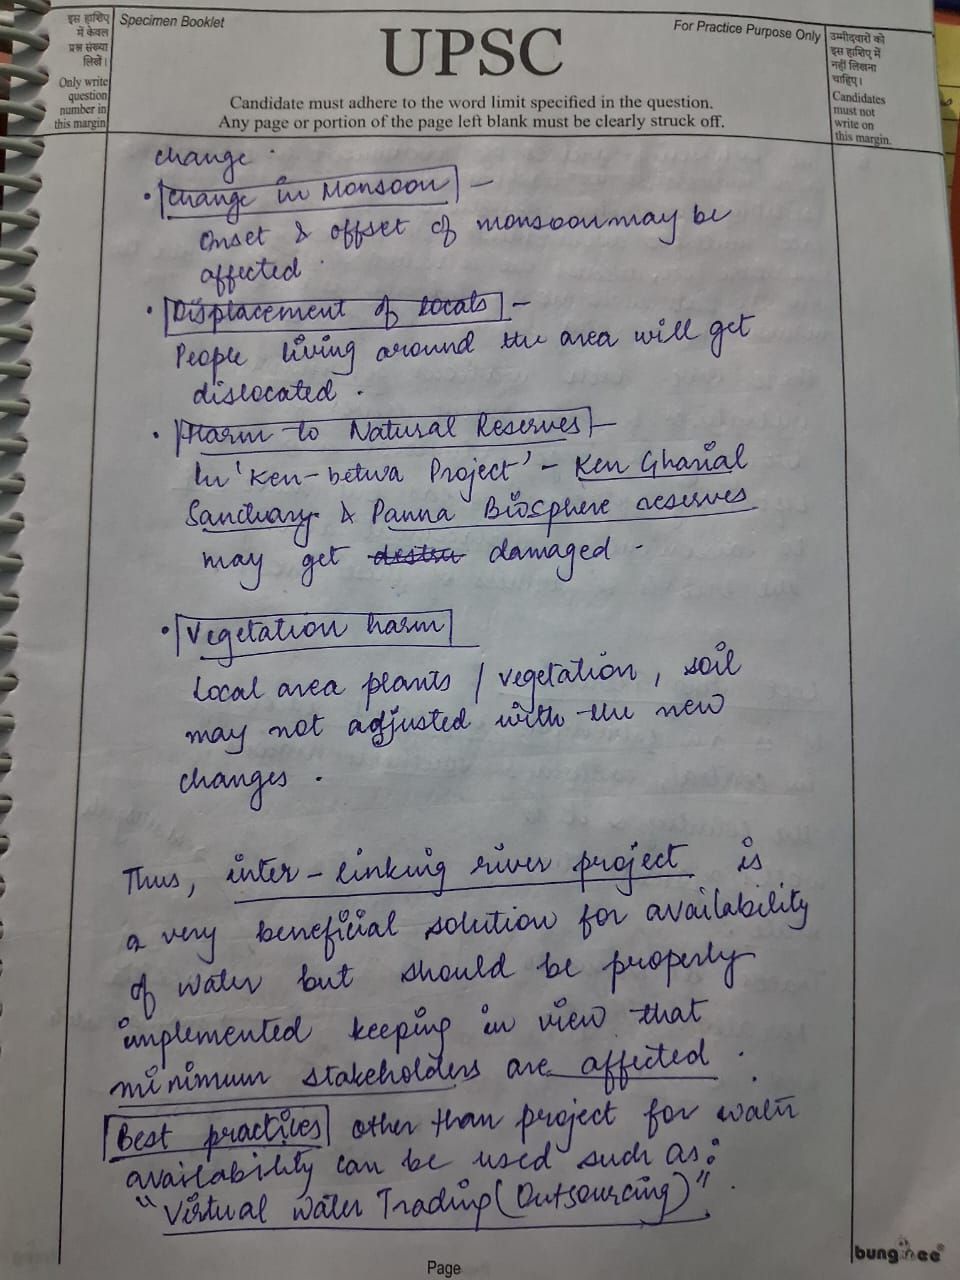 इस हाशिए
में केवल
प्रश्न संख्या
लिखें।
Only write
question
number in
this margin
Specimen Booklet
UPSC
For Practice Purpose Only
Candidate must adhere to the word limit specified in the question.
Any page or portion of the page left blank must be clearly struck off.
उम्मीदवारों को
इस हाशिए में
नहीं लिखना
चाहिए।
Candidates
must not
write on
this margin.
change.
• Change in Monsoon –
Onset & offset of monsoon may be
affected.
• Displacement of locals –
People living around the area will get
dislocated.
• Harm to Natural Reserves –
In 'Ken-betwa Project' – Ken Gharial
Sanctuary & Panna Biosphere reserves
may get damaged.
• Vegetation harm
Local area plants / vegetation, soil
may not adjusted with the new
changes.
Thus, inter-linking river project is
a very beneficial solution for availability
of water but should be properly
implemented keeping in view that
minimum stakeholders are affected.
Best practices other than project for water
availability can be used such as:
"Virtual Water Trading (Outsourcing)".
Page
bungee